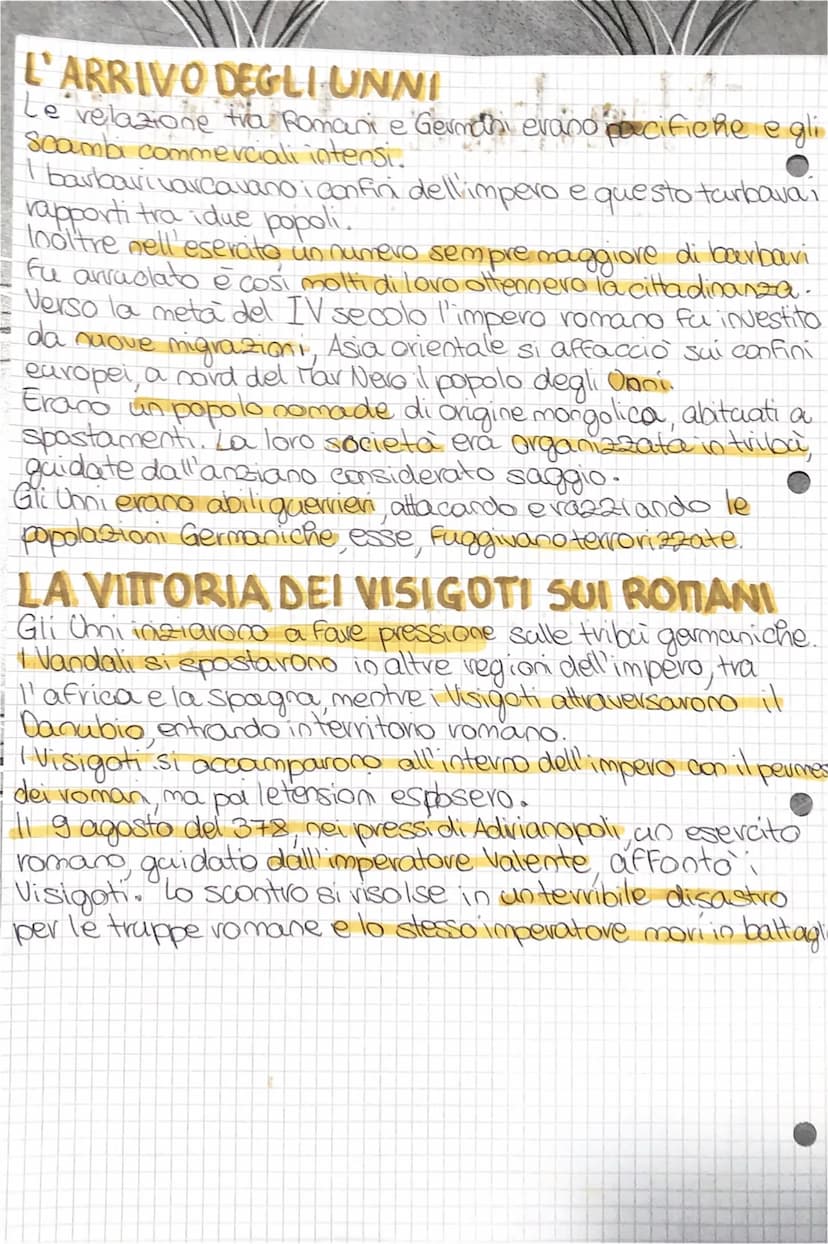 L'ARRIVO DEGLI UNNI
Le relazione tra Romani e Germani erano pacifiche e gli
scambi commerciali intensi.
I barbari varcavano i confini dell'impero e questo turbava i
rapporti tra i due popoli.
Inoltre nell'esercito un numero sempre maggiore di barbari
fu arruolato e così molti di loro ottennero la cittadinanza.
Verso la metà del IV secolo l'impero romano fu investito
da nuove migrazioni, Asia orientale si affacciò sui confini
europei, a nord del Mar Nero il popolo degli Unni.
Erano un popolo nomade di origine mongolica, abituati a
spostamenti. La loro società era organizzata in tribù,
guidate dall'anziano considerato saggio.
Gli Unni erano abili guerrieri, attacando e razziando le
popolazioni Germaniche, esse, fuggivano terrorizzate.
LA VITTORIA DEI VISIGOTI SUI ROMANI
Gli Unni iniziarono a fare pressione sulle tribù germaniche.
I Vandali si spostarono in altre regioni dell'impero, tra
l'africa e la Spagna, mentre i Visigoti attraversarono il
Danubio, entrando in territorio romano.
I Visigoti si accamparono all'interno dell'impero con il permes
dei romani, ma poi le tensioni esplosero.
Il 9 agosto del 378, nei pressi di Adrianopoli, un esercito
romano, guidato dall'imperatore Valente, affontò i
Visigoti. Lo scontro si risolse in un terribile disastro
per le truppe romane e lo stesso imperatore morì in battagli